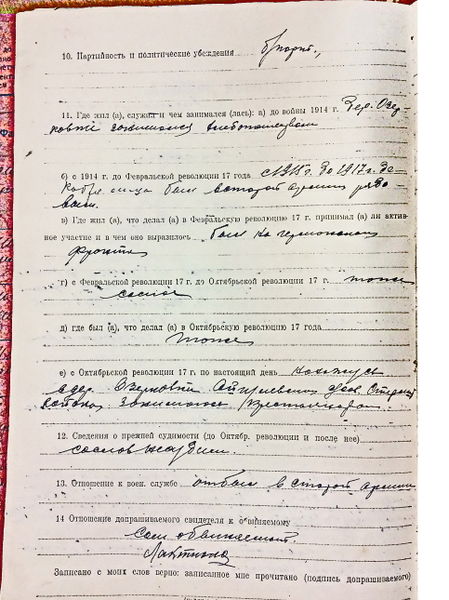 10. Партийность и политические убеждения б/парт.,
11. Где жил (а), служил и чем занимался (лась): а) до войны 1914 г. Дер. Озер-
ковке занимался хлебопашеством
б) с 1914 г. до Февральской революции 17 года с 1915 г. до 1917 г. де-
кабре м-ца был в старой армии рядо-
вым.
в) Где жил (а), что делал (а) в Февральскую революцию 17 г. принимал (а) ли актив-
ное участие и в чем оно выразилось был на германском
фронте
г) с Февральской революции 17 г. до Октябрьской революции 17 г.
д) где был (а), что делал (а) в Октябрьскую революцию 17 года
тоже
е) с Октябрьской революции 17 г. по настоящий день нахожусь
в дер. Озерковки
занимаюсь
12. Сведения о прежней судимости (до Октябр. революции и после нее)
со слов не судим.
13. Отношение к воен. службе отбыл в старой армии
14 Отношение допрашиваемого свидетеля к обвиняемому
сам обвиняемый.
Записано с моих слов верно: записанное мне прочитано (подпись допрашиваемого)